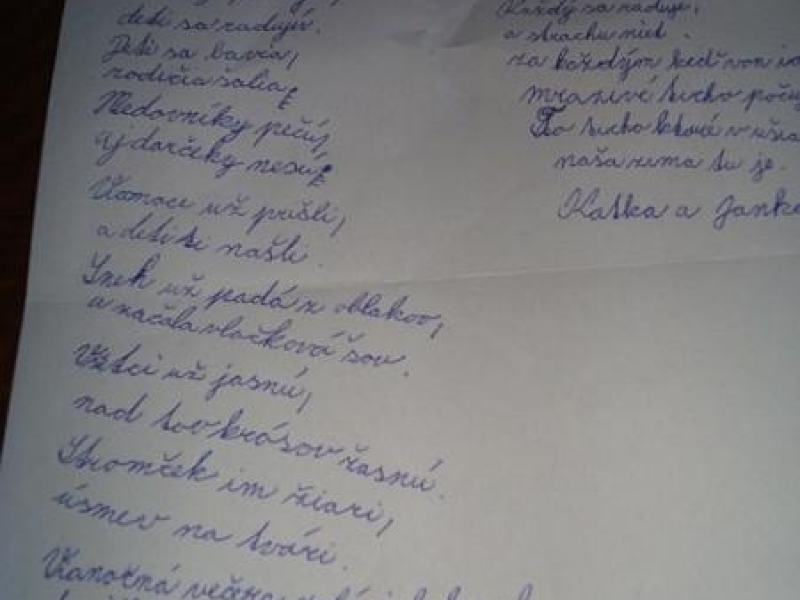 deti sa radujú.
Deti sa bavia,
rodičia šalia,
Medovníky pečú,
aj darčeky nesú,
Vianoce už prišli,
a deti si našli.
Sneh už padá z oblakov,
a začala vlačková šov.
Všetci už jasnú,
nad tov krásov žasnú.
Stromček im žiari,
úsmev na tvári.
Vianočná večera
Každý sa raduje,
a strachu niet.
za každým keď von
mrazivé ticho
To ticho ktoré v
naša zima tu je.
Katka a Janka